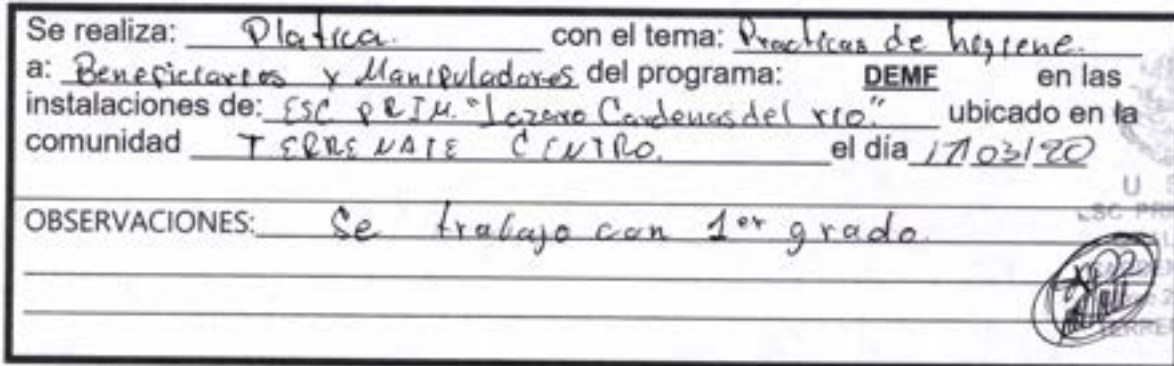 Se realiza: Platica. con el tema: Practicas de higiene.
a: Beneficiarios y Manipuladores del programa: DEMF en las
instalaciones de: ESC PRIM. "Lazaro Cardenas del rio." ubicado en la
comunidad TERRENATE CENTRO. el día 17/03/20
U
ESC PRI
OBSERVACIONES: Se trabajo con 1er grado.
TERRE